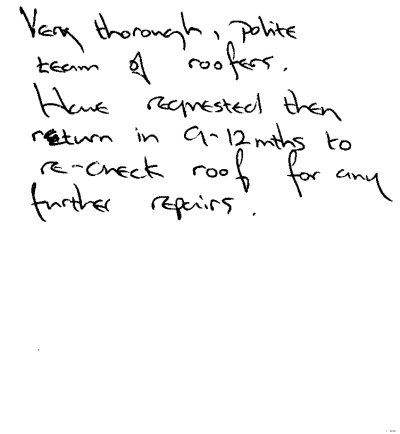 Very thorough, polite
team of roofers.
Have requested then
return in 9-12 mths to
re-check roof for any
further repairs.